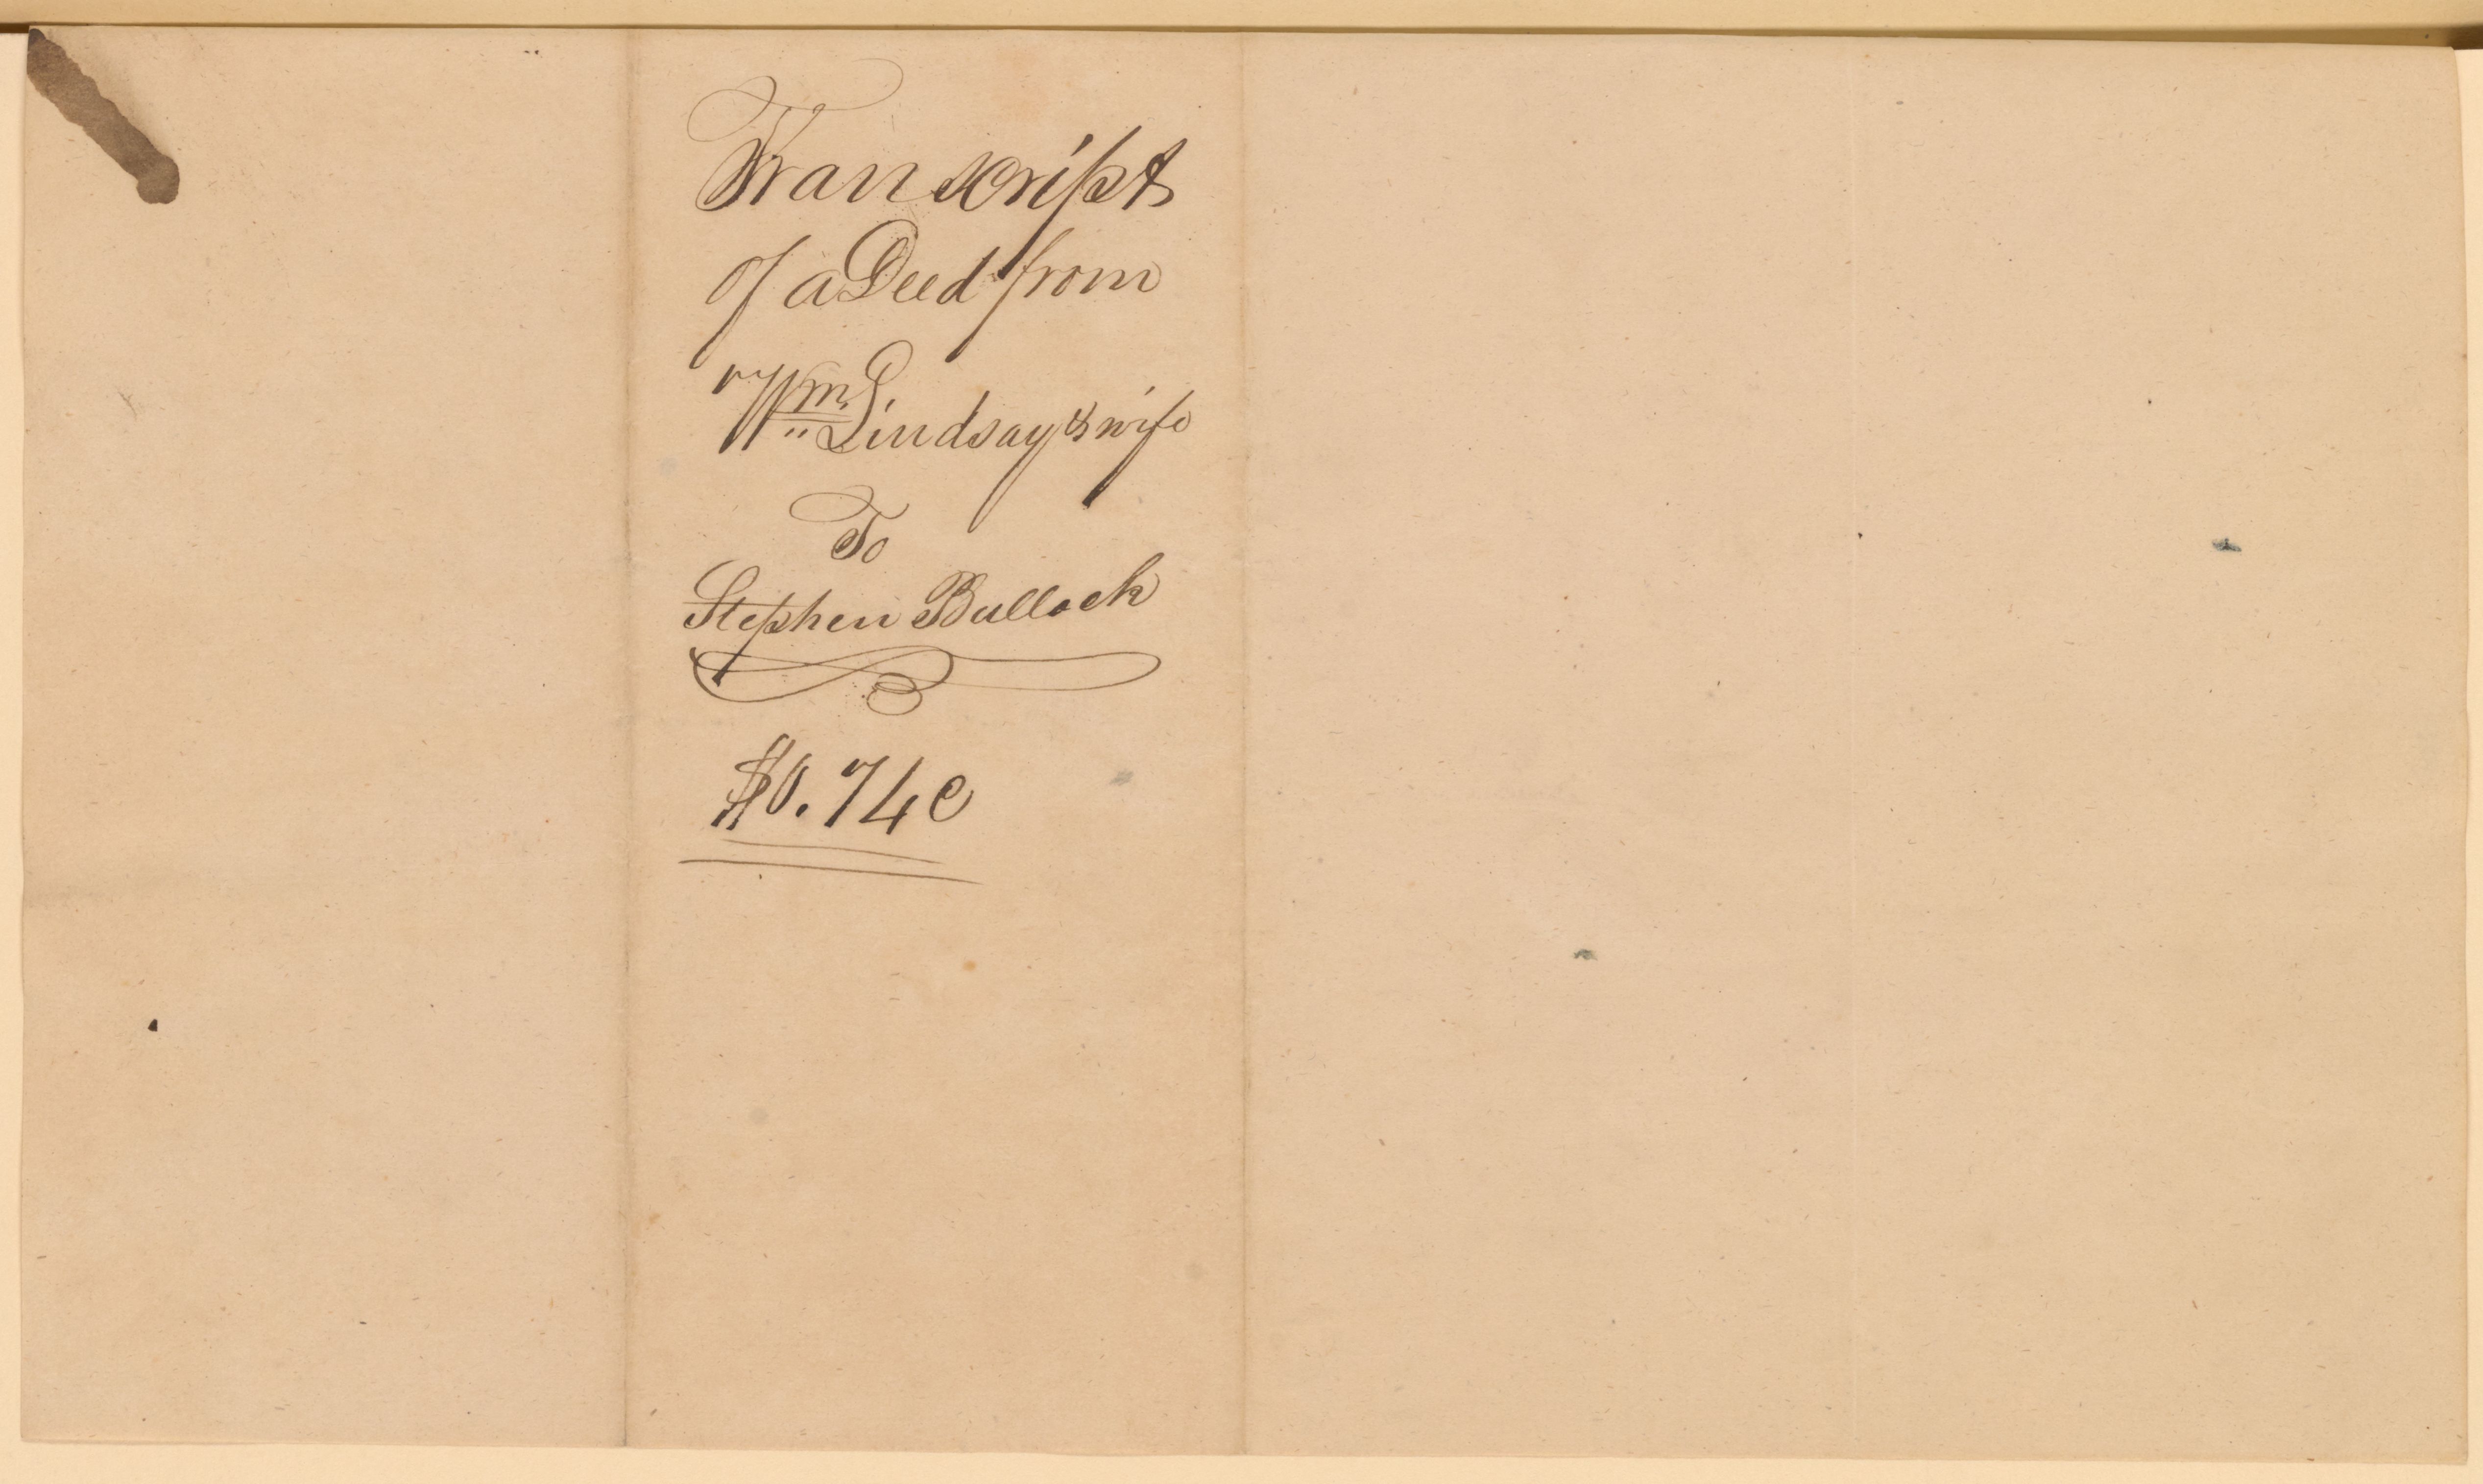 Transcript
of a Deed from
Wm. Lindsay & wife
To
Stephen Bullock
$0.74c